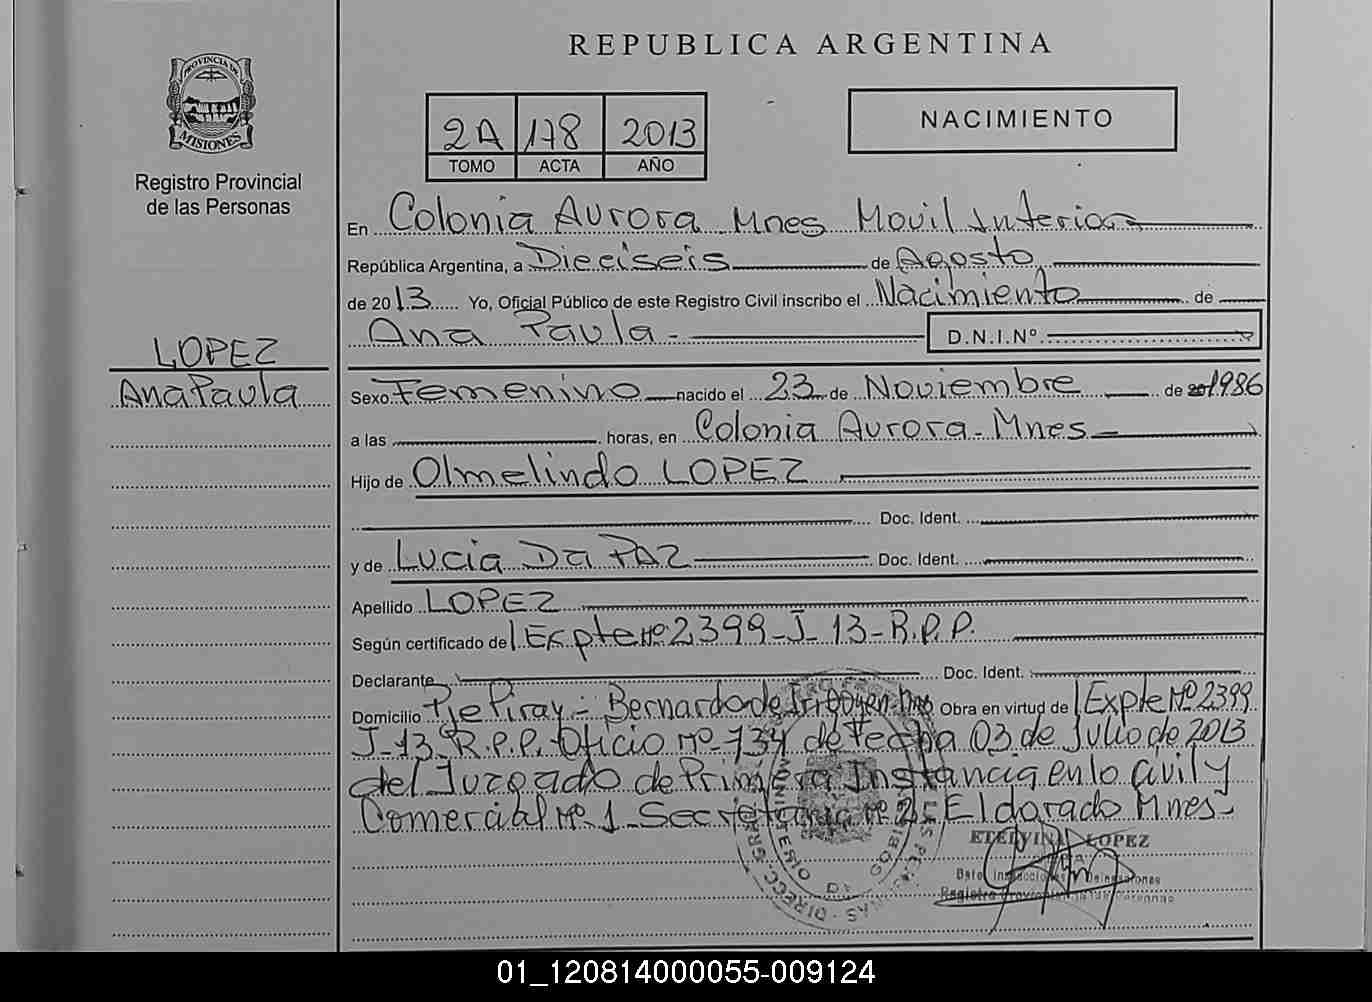 REPUBLICA ARGENTINA
PROVINCIA DE
MISIONES
Registro Provincial
de las Personas
2A 178 2013
TOMO ACTA AÑO
NACIMIENTO
En Colonia Aurora Mnes Movil Interior
República Argentina, a Dieciseis de Agosto
de 2013 Yo, Oficial Público de este Registro Civil inscribo el Nacimiento de
Ana Paula.-
D.N.I.Nº
LOPEZ
Ana Paula
Sexo Femenino nacido el 23 de Noviembre de 1986
a las horas, en Colonia Aurora - Mnes -
Hijo de Olmelindo LOPEZ
Doc. Ident.
y de Lucia Da PAZ Doc. Ident.
Apellido LOPEZ
Según certificado de Expte Nº 2399-J-13-R.P.P.
Declarante Doc. Ident.
Domicilio Pje Piray - Bernardo de Irigoyen Mnes Obra en virtud de Expte Nº 2399
J-13-R.P.P. Oficio Nº 734 de Fecha 03 de Julio de 2013
del Juzgado de Primera Instancia en lo Civil y
Comercial Nº 1 - Secretaria Nº 2 - Eldorado Mnes -
ETELVINA LOPEZ
Registro Provincial de las Personas
01_120814000055-009124